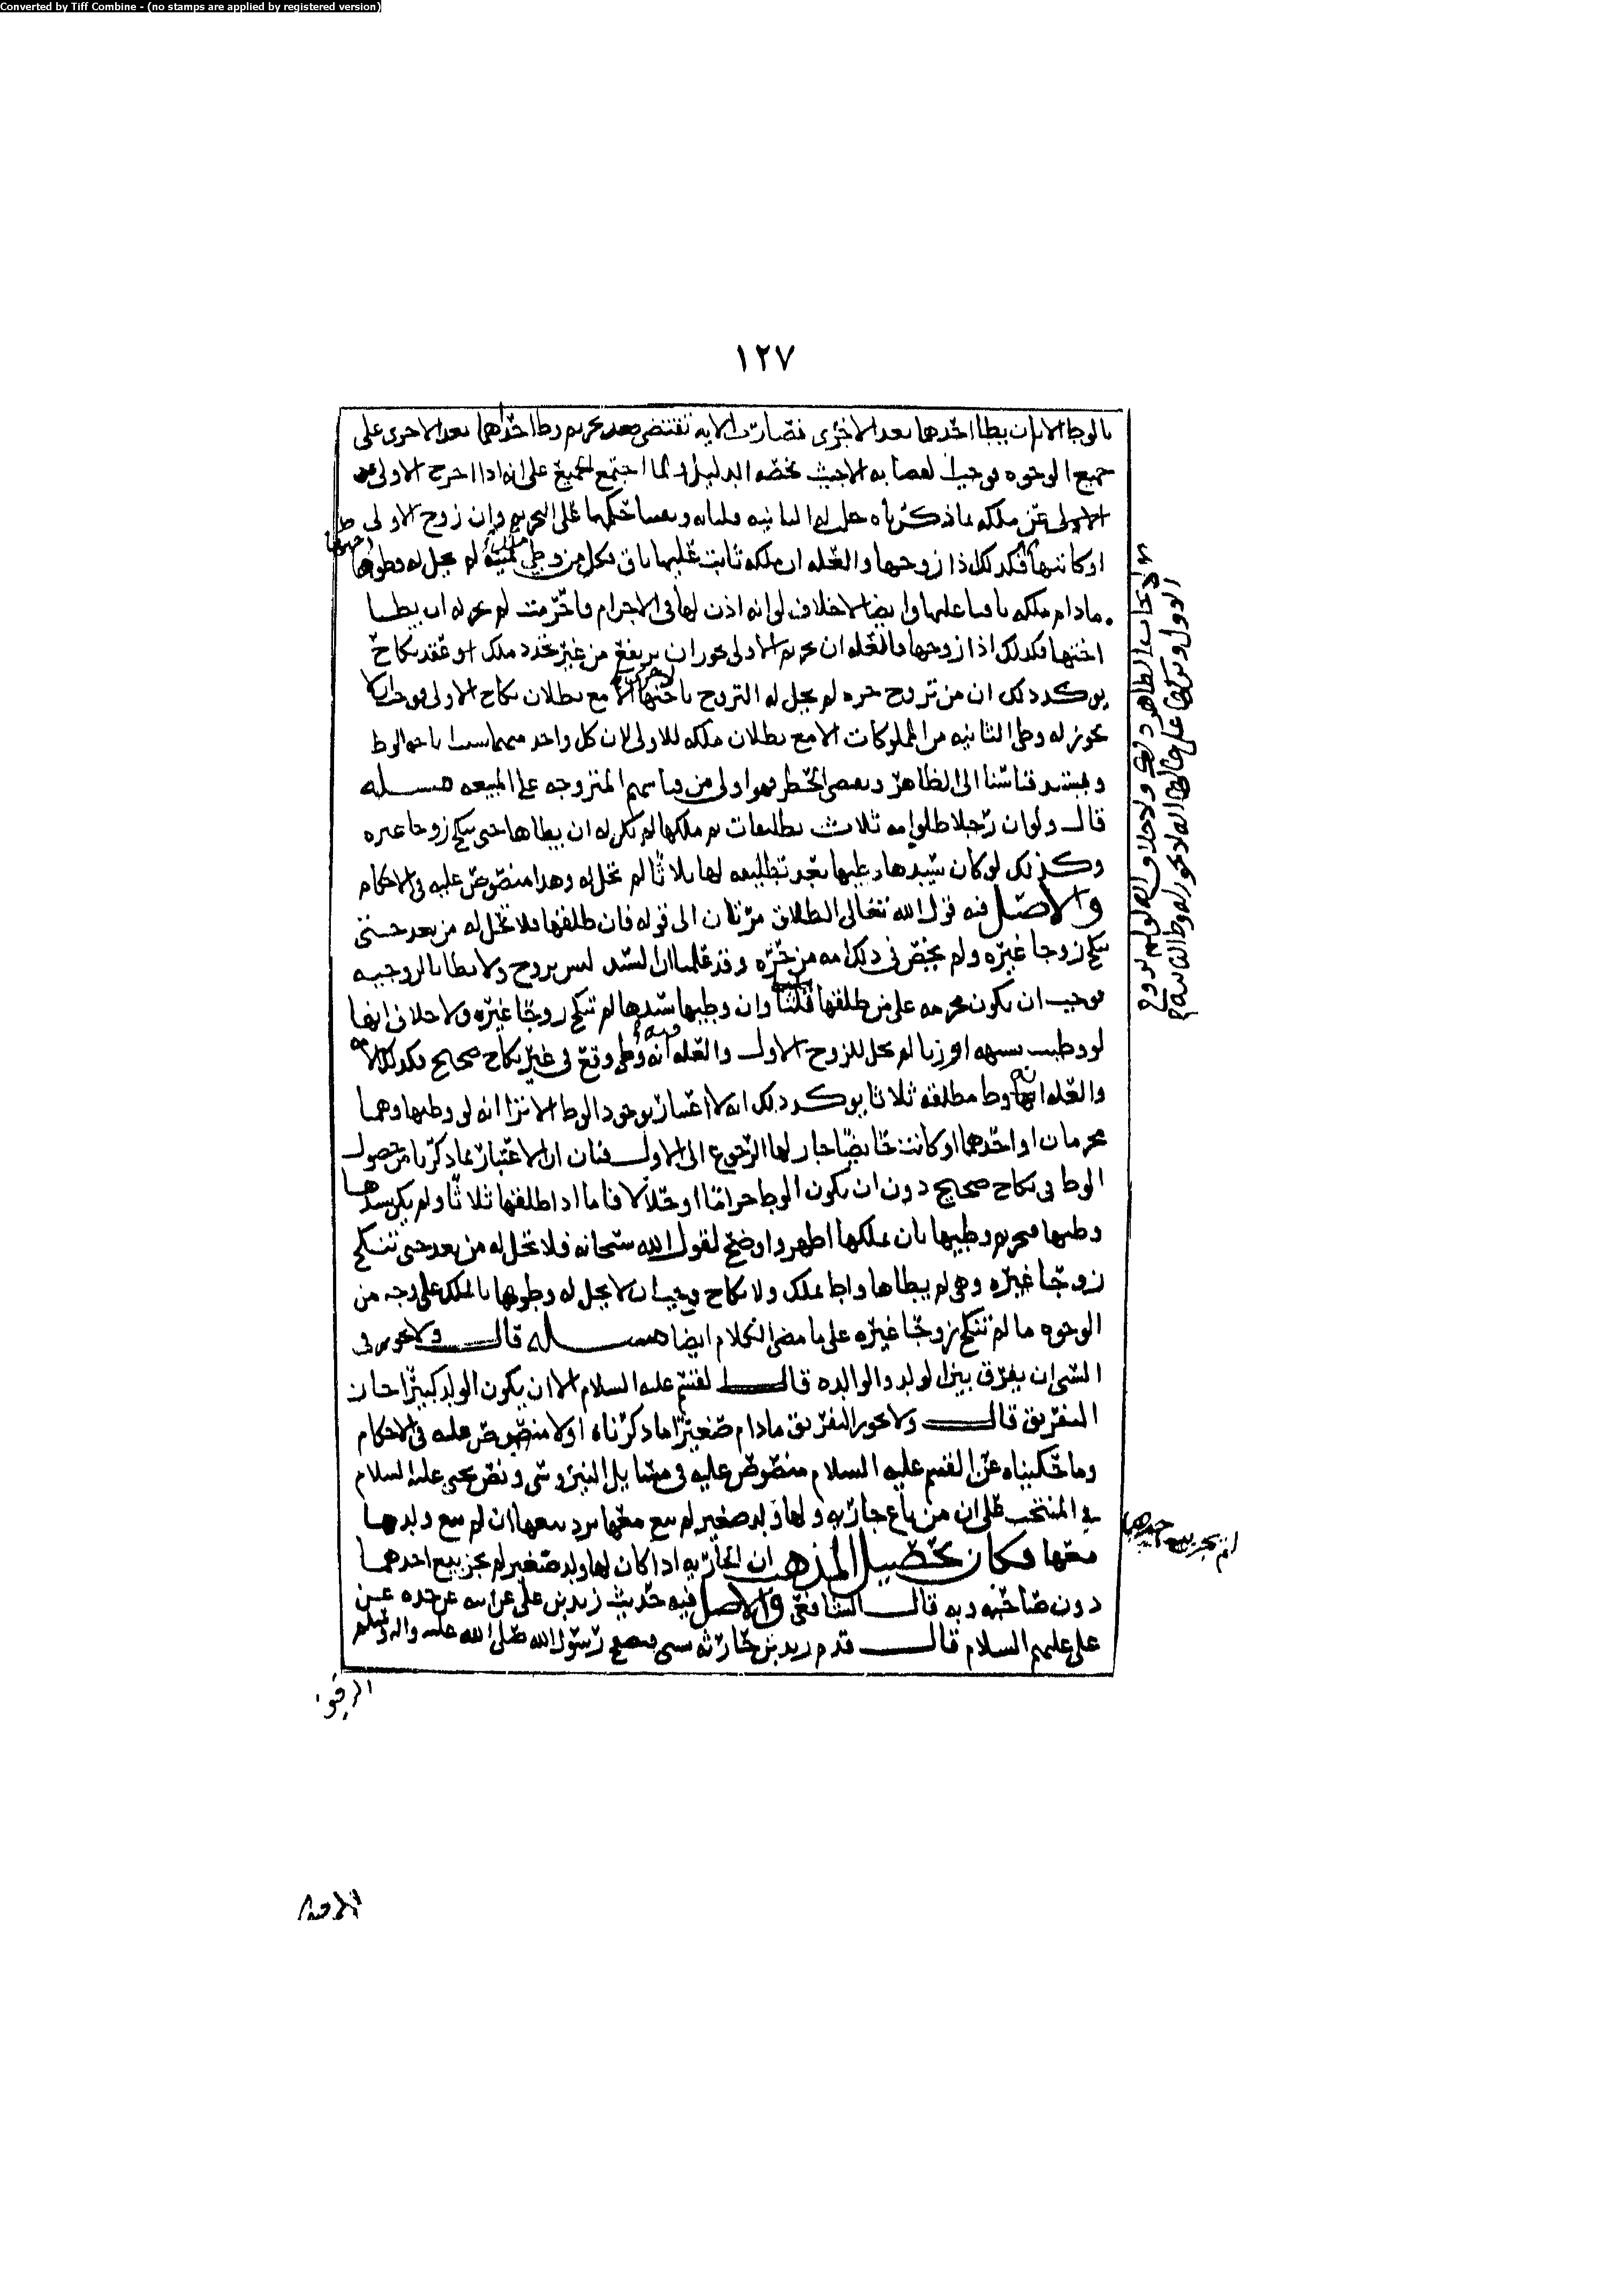 Converted by Tiff Combine - (no stamps are applied by registered version)
١٢٧
بالوطا الا بان يطا احدهما بعد الاخرى فصارت الايه تقتضي تحريم وطا احداهما بعد الاخرى على
جميع الوجوه فوجب القضا به الا حيث يخصه الدليل ولما اجتمع الجميع على انه اذا اخرج الاولى
الاولى عن ملكه بما ذكرناه حل له الثانيه قلنا به وبقينا حكمها على التحريم وان زوج الاولى
او كاتبها فكذلك اذا زوجها والعله ان ملكه ثابت عليها باق فكل من وطي لم يحل له وطوها
ما دام ملكه باقيا عليها وايضا لا خلاف لو انه اذن لها في الاحرام فاحرمت لم يجز له ان يطا
اختها فكذلك اذا زوجها والعله ان تحريم الاولى يجوز ان يرتفع من غير تجدد ملك او عقد نكاح
يوكد ذلك ان من تزوج حره لم يحل له التزوج باختها الا مع بطلان نكاح الاولى فوجب ان لا
يجوز له وطي الثانيه من المملوكات الا مع بطلان ملكه للاولى لان كل واحد منهما
ويستند قياسنا الى الظاهر ويقتضي الحظر فهو اولى من قياسهم المتزوجه على المبيعه مسله
قال ولو ان رجلا طلق امه ثلاث تطليقات ثم ملكها لم يكن له ان يطاها حتى تنكح زوجا غيره
وكذلك لو كان سيدها وطيها بعد تطليقه لها ثلاثا لم تحل له وهذا منصوص عليه في الاحكام
والاصل فيه قول الله تعالى الطلاق مرتان الى قوله فان طلقها فلا تحل له من بعد حتى
تنكح زوجا غيره ولم يخص في ذلك امه من حره وقد علمنا ان السيد ليس بزوج ولا يطا بالزوجيه
فوجب ان تكون محرمه على من طلقها قلنا وان وطيها سيدها لم تنكح زوجا غيره ولا خلاف انها
لو وطيت بشبهه او زنا لم تحل للزوج الاول والعله انه وطي وقع في غير نكاح صحيح فكذلك الامه
والعله انها وطا مطلقه ثلاثا يوكد ذلك انه لا اعتبار بوجود الوطا الا ترا انه لو وطيها وهما
محرمان او احدهما او كانت حايضا جاز لها الرجوع الى الاول فبان ان الاعتبار بما ذكرنا من حصول
الوطا في نكاح صحيح دون ان يكون الوطا حراما او حلالا فاما اذا طلقها ثلاثا ولم يكن سيدها
وطيها فتحريم وطيها بان يملكها اظهر واوضح لقول الله سبحانه فلا تحل له من بعد حتى تنكح
زوجا غيره وهي لم يطاها واطا بملك ولا نكاح فوجب ان لا يحل له وطوها بالملك على وجه من
الوجوه ما لم تنكح زوجا غيره على ما مضى الكلام ايضا مسله قال ولا يجوز في
السبي ان يفرق بين الولد والوالده قال القسم عليه السلام الا ان يكون الولد كبيرا جاز
التفريق قال ولا يجوز التفريق ما دام صغيرا ما ذكرناه اولا منصوص عليه في الاحكام
وما حكيناه عن القسم عليه السلام منصوص عليه في مسايل النيروسي ونص يحيى عليه السلام
في المنتخب على ان من باع جاريه ولها ولد صغير لم يبع معها يرد بيعها ان لم يبع ولدها
معها فكان تحصيل المذهب ان الجاريه اذا كان لها ولد صغير لم يجز بيع احدهما
دون صاحبه وبه قال الشافعي والاصل فيه حديث زيد بن علي عن ابيه عن جده عن
علي عليهم السلام قال قدم زيد بن حارثه بسبي فتصفح رسول الله صلى الله عليه واله وسلم
الرقيق
لم يجز بيع احدهما